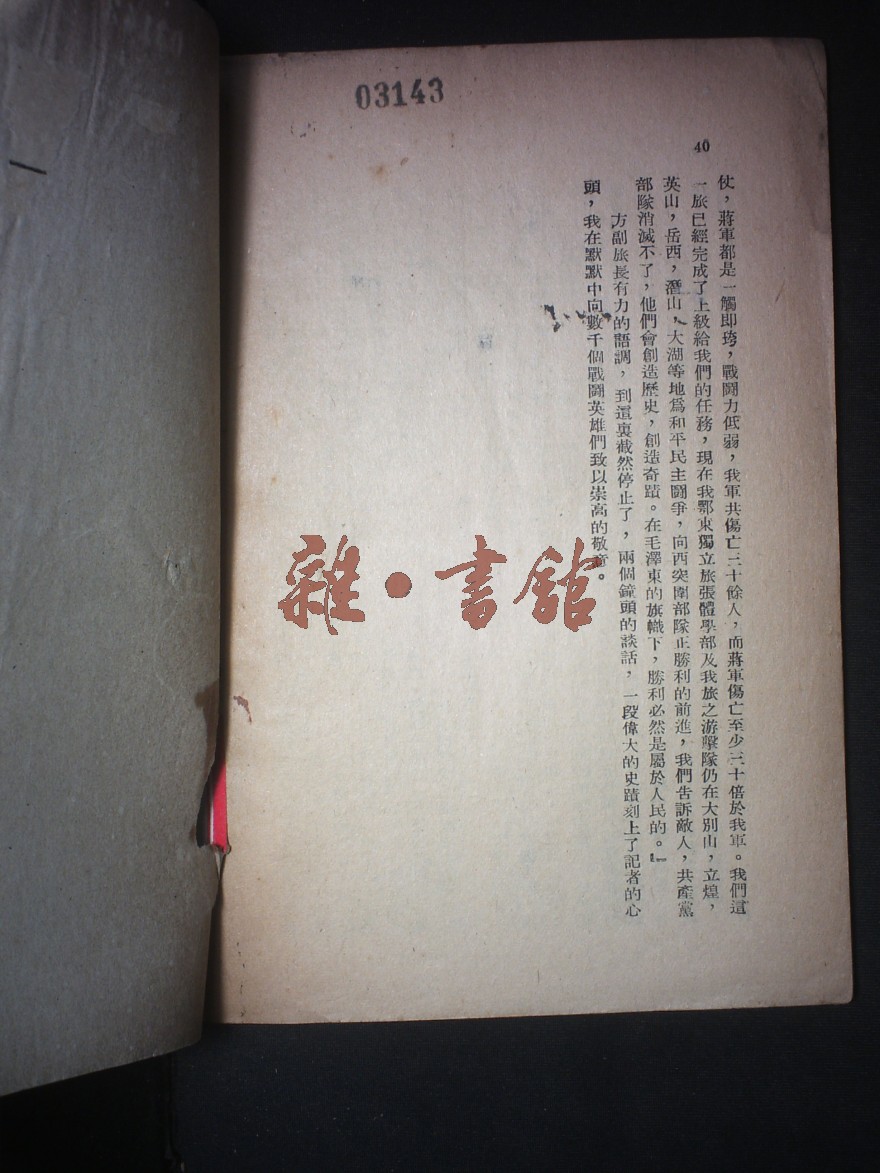 03143
40
仗，蔣軍都是一觸即垮，戰鬪力低弱，我軍共傷亡三十餘人，而蔣軍傷亡至少三十倍於我軍。我們這
一旅已經完成了上級給我們的任務，現在我鄂東獨立旅張體學部及我旅之游擊隊仍在大別山，立煌，
英山，岳西，潛山，大湖等地爲和平民主鬪爭，向西突圍部隊正勝利的前進，我們告訴敵人，共產黨
部隊消滅不了，他們會創造歷史，創造奇蹟。在毛澤東的旗幟下，勝利必然是屬於人民的。』
方副旅長有力的語調，到這裏截然停止了，兩個鐘頭的談話，一段偉大的史蹟刻上了記者的心
頭，我在默默中向數千個戰鬪英雄們致以崇高的敬意。
雜·書館